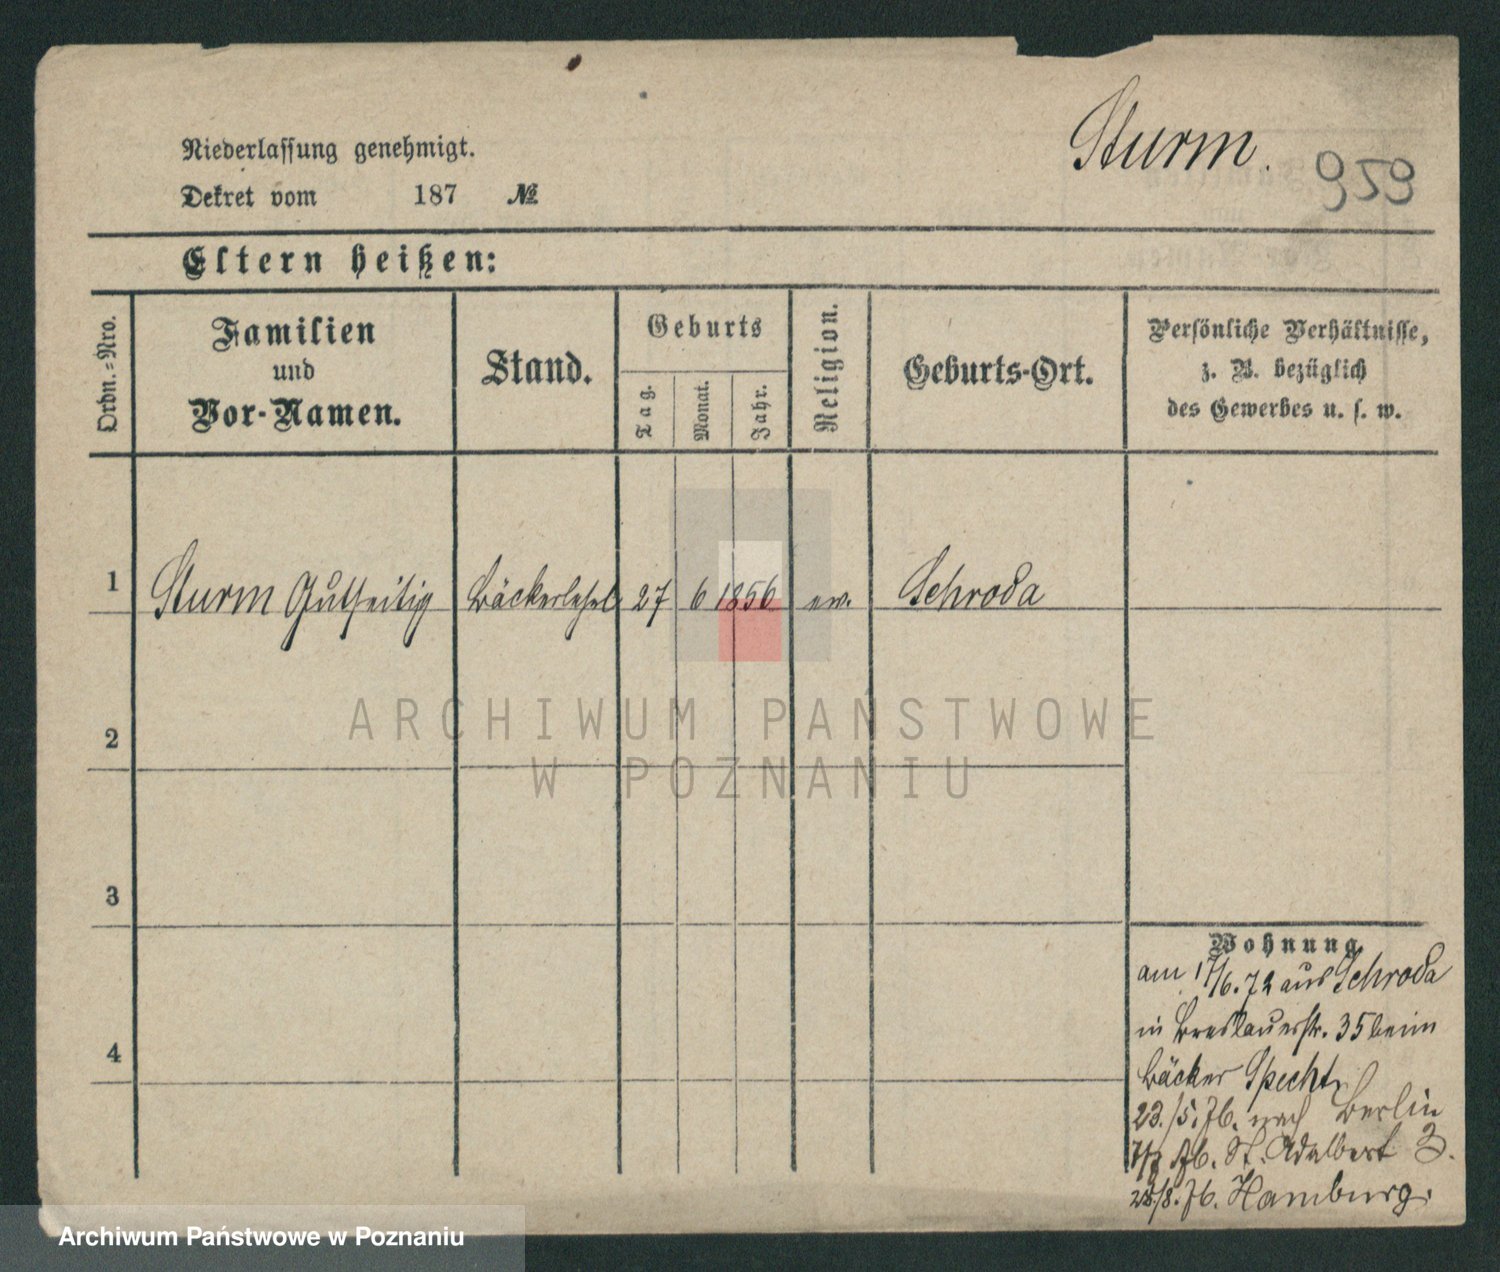 Sturm.
959
Niederlassung genehmigt.
Dekret vom 187 №
Eltern heißen:
Ordn.=Nro.
Familien
und
Vor-Namen.
Stand.
Geburts
Tag.
Monat.
Jahr.
Religion.
Geburts-Ort.
Persönliche Verhältnisse,
z. B. bezüglich
des Gewerbes u. s. w.
1 Sturm Bäckerlehrl 27 6 1856 ev. Schroda
2
3
4
Wohnung
am 17/6.72 aus Schroda
in Breslauerstr. 35 beim
Bäcker Specht
23./5.76. nach Berlin
76. St. Adalbert 3.
/8.76. Hamburg.
ARCHIWUM PAŃSTWOWE
W POZNANIU
Archiwum Państwowe w Poznaniu